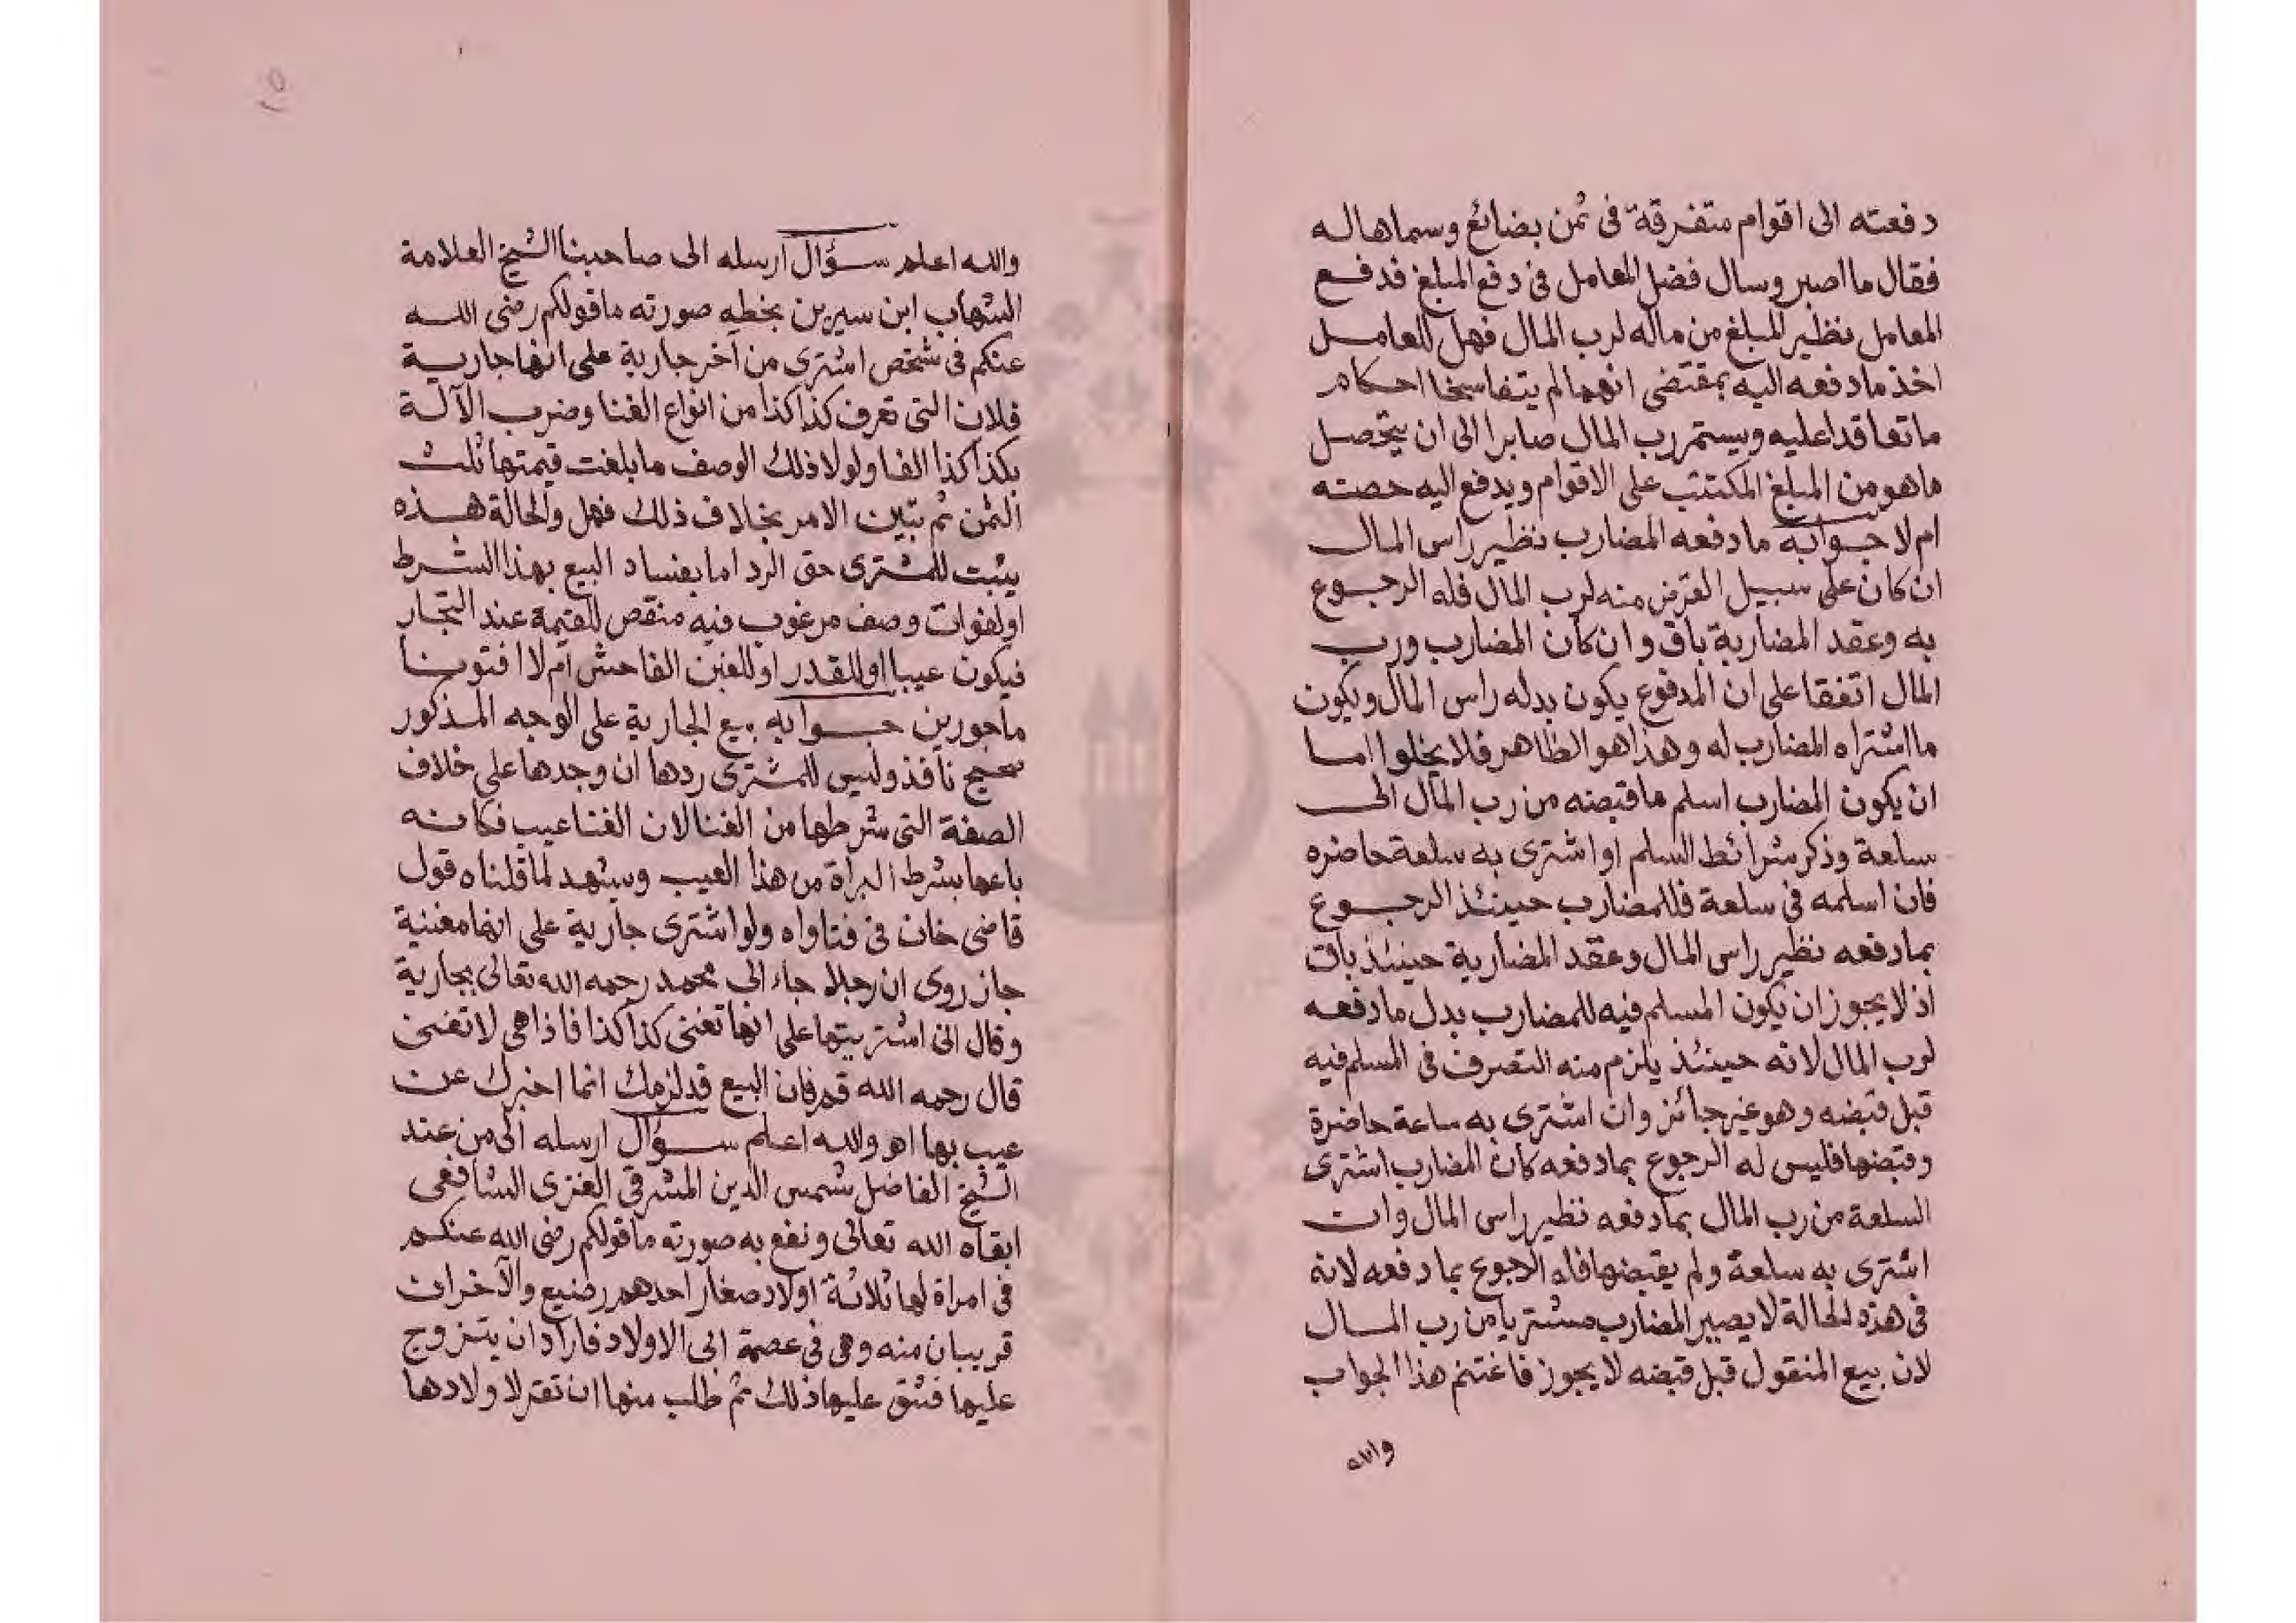 دفعته الى اقوام متفرقة فى ثمن بضائع وسماها له
فقال ما اصبر وسال فضل المعامل فى دفع المبلغ فدفع
المعامل نظير المبلغ من ماله لرب المال فهل للعامل
اخذ ما دفعه اليه بمقتضى انهما لم يتفاسخا احكام
ما تعاقدا عليه ويستمر رب المال صابرا الى ان يتحصل
ما هو من المبلغ المكتتب على الاقوام ويدفع اليه حصته
ام لا جوابه ما دفعه المضارب نظير راس المال
ان كان على سبيل القرض منه لرب المال فله الرجوع
به وعقد المضاربة باق وان كان المضارب ورب
المال اتفقا على ان المدفوع يكون بدله راس المال ويكون
ما اشتراه المضارب له وهذا هو الظاهر فلا يخلوا اما
ان يكون المضارب اسلم ما قبضه من رب المال الى
سلعة وذكر شرائط السلم او اشترى به سلعة حاضره
فان اسلمه فى سلعة فللمضارب حينئذ الرجوع
بما دفعه نظير راس المال وعقد المضاربة حينئذ باق
اذ لا يجوز ان يكون المسلم فيه للمضارب بدل ما دفعه
لرب المال لانه حينئذ يلزم منه التصرف فى المسلم فيه
قبل قبضه وهو غير جائز وان اشترى به ساعة حاضرة
وقبضها فليس له الرجوع بما دفعه كان المضارب اشترى
السلعة من رب المال بما دفعه نظير راس المال وان
اشترى به سلعة ولم يقبضها فله الرجوع بما دفعه لانه
فى هذه الحالة لا يصير المضارب مشتريا من رب المال
لان بيع المنقول قبل قبضه لا يجوز فاغتنم هذا الجواب
والله
والله اعلم سؤال ارسله الى صاحبنا الشيخ العلامة
الشهاب ابن سيرين بخطه صورته ما قولكم رضى الله
عنكم فى شخص اشترى من آخر جارية على انها جارية
فلان التى تعرف كذا كذا من انواع الغنا وضرب الآلة
بكذا كذا الفا ولولا ذلك الوصف ما بلغت قيمتها ثلث
الثمن ثم تبين الامر بخلاف ذلك فهل والحالة هذه
يثبت للمشترى حق الرد اما بفساد البيع بهذا الشرط
او لفوات وصف مرغوب فيه منقص للقيمة عند التجار
فيكون عيبا او للقدر او للغبن الفاحش ام لا افتونا
ماجورين جوابه بيع الجارية على الوجه المذكور
صحيح نافذ وليس للمشترى ردها ان وجدها على خلاف
الصفة التى شرطها من الغنا لان الغنا عيب فكانه
باعها بشرط البراة من هذا العيب ويشهد لما قلناه قول
قاضى خان فى فتاواه ولو اشترى جارية على انها مغنية
جاز روى ان رجلا جاء الى محمد رحمه الله تعالى بجارية
وقال انى اشتريتها على انها تغنى كذا كذا فاذا هى لا تغنى
قال رحمه الله قم فان البيع قد لزمك انما اخبرك عن
عيب بها اه والله اعلم سؤال ارسله الى من عند
الشيخ الفاضل شمس الدين المشرقى الغزى الشافعى
ابقاه الله تعالى ونفع به صورته ما قولكم رضى الله عنكم
فى امراة لها ثلاثة اولاد صغار احدهم رضيع والآخران
قريبان منه وهى فى عصمة ابى الاولاد فاراد ان يتزوج
عليها فشق عليها ذلك ثم طلب منها ان تقر لاولادها